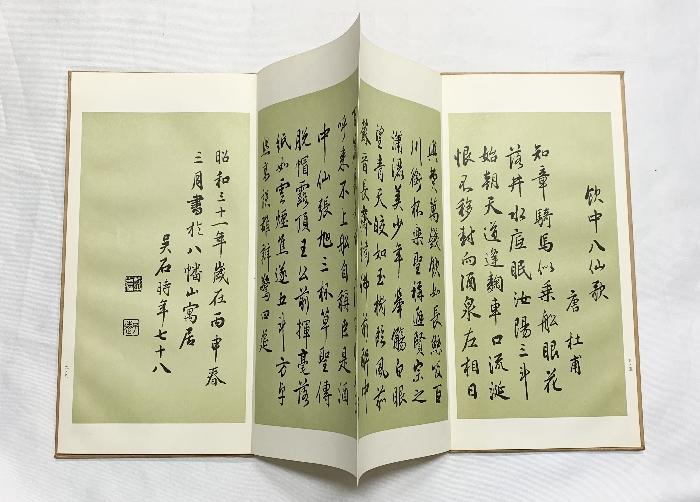 飲中八仙歌
唐 杜甫
知章騎馬似乘船眼花
落井水底眠汝陽三斗
始朝天道逢麴車口流涎
恨不移封向酒泉左相日
興費萬錢飲如長鯨吸百
川銜杯樂聖稱避賢宗之
瀟灑美少年舉觴白眼
望青天皎如玉樹臨風前
蘇晋長齋繡佛前醉中
呼來不上船自稱臣是酒
中仙張旭三杯草聖傳
脱帽露頂王公前揮毫落
紙如雲煙焦遂五斗方卓
然高談雄辯驚四筵
昭和三十一年歲在丙申春
三月書於八幡山寓居
吴石時年七十八